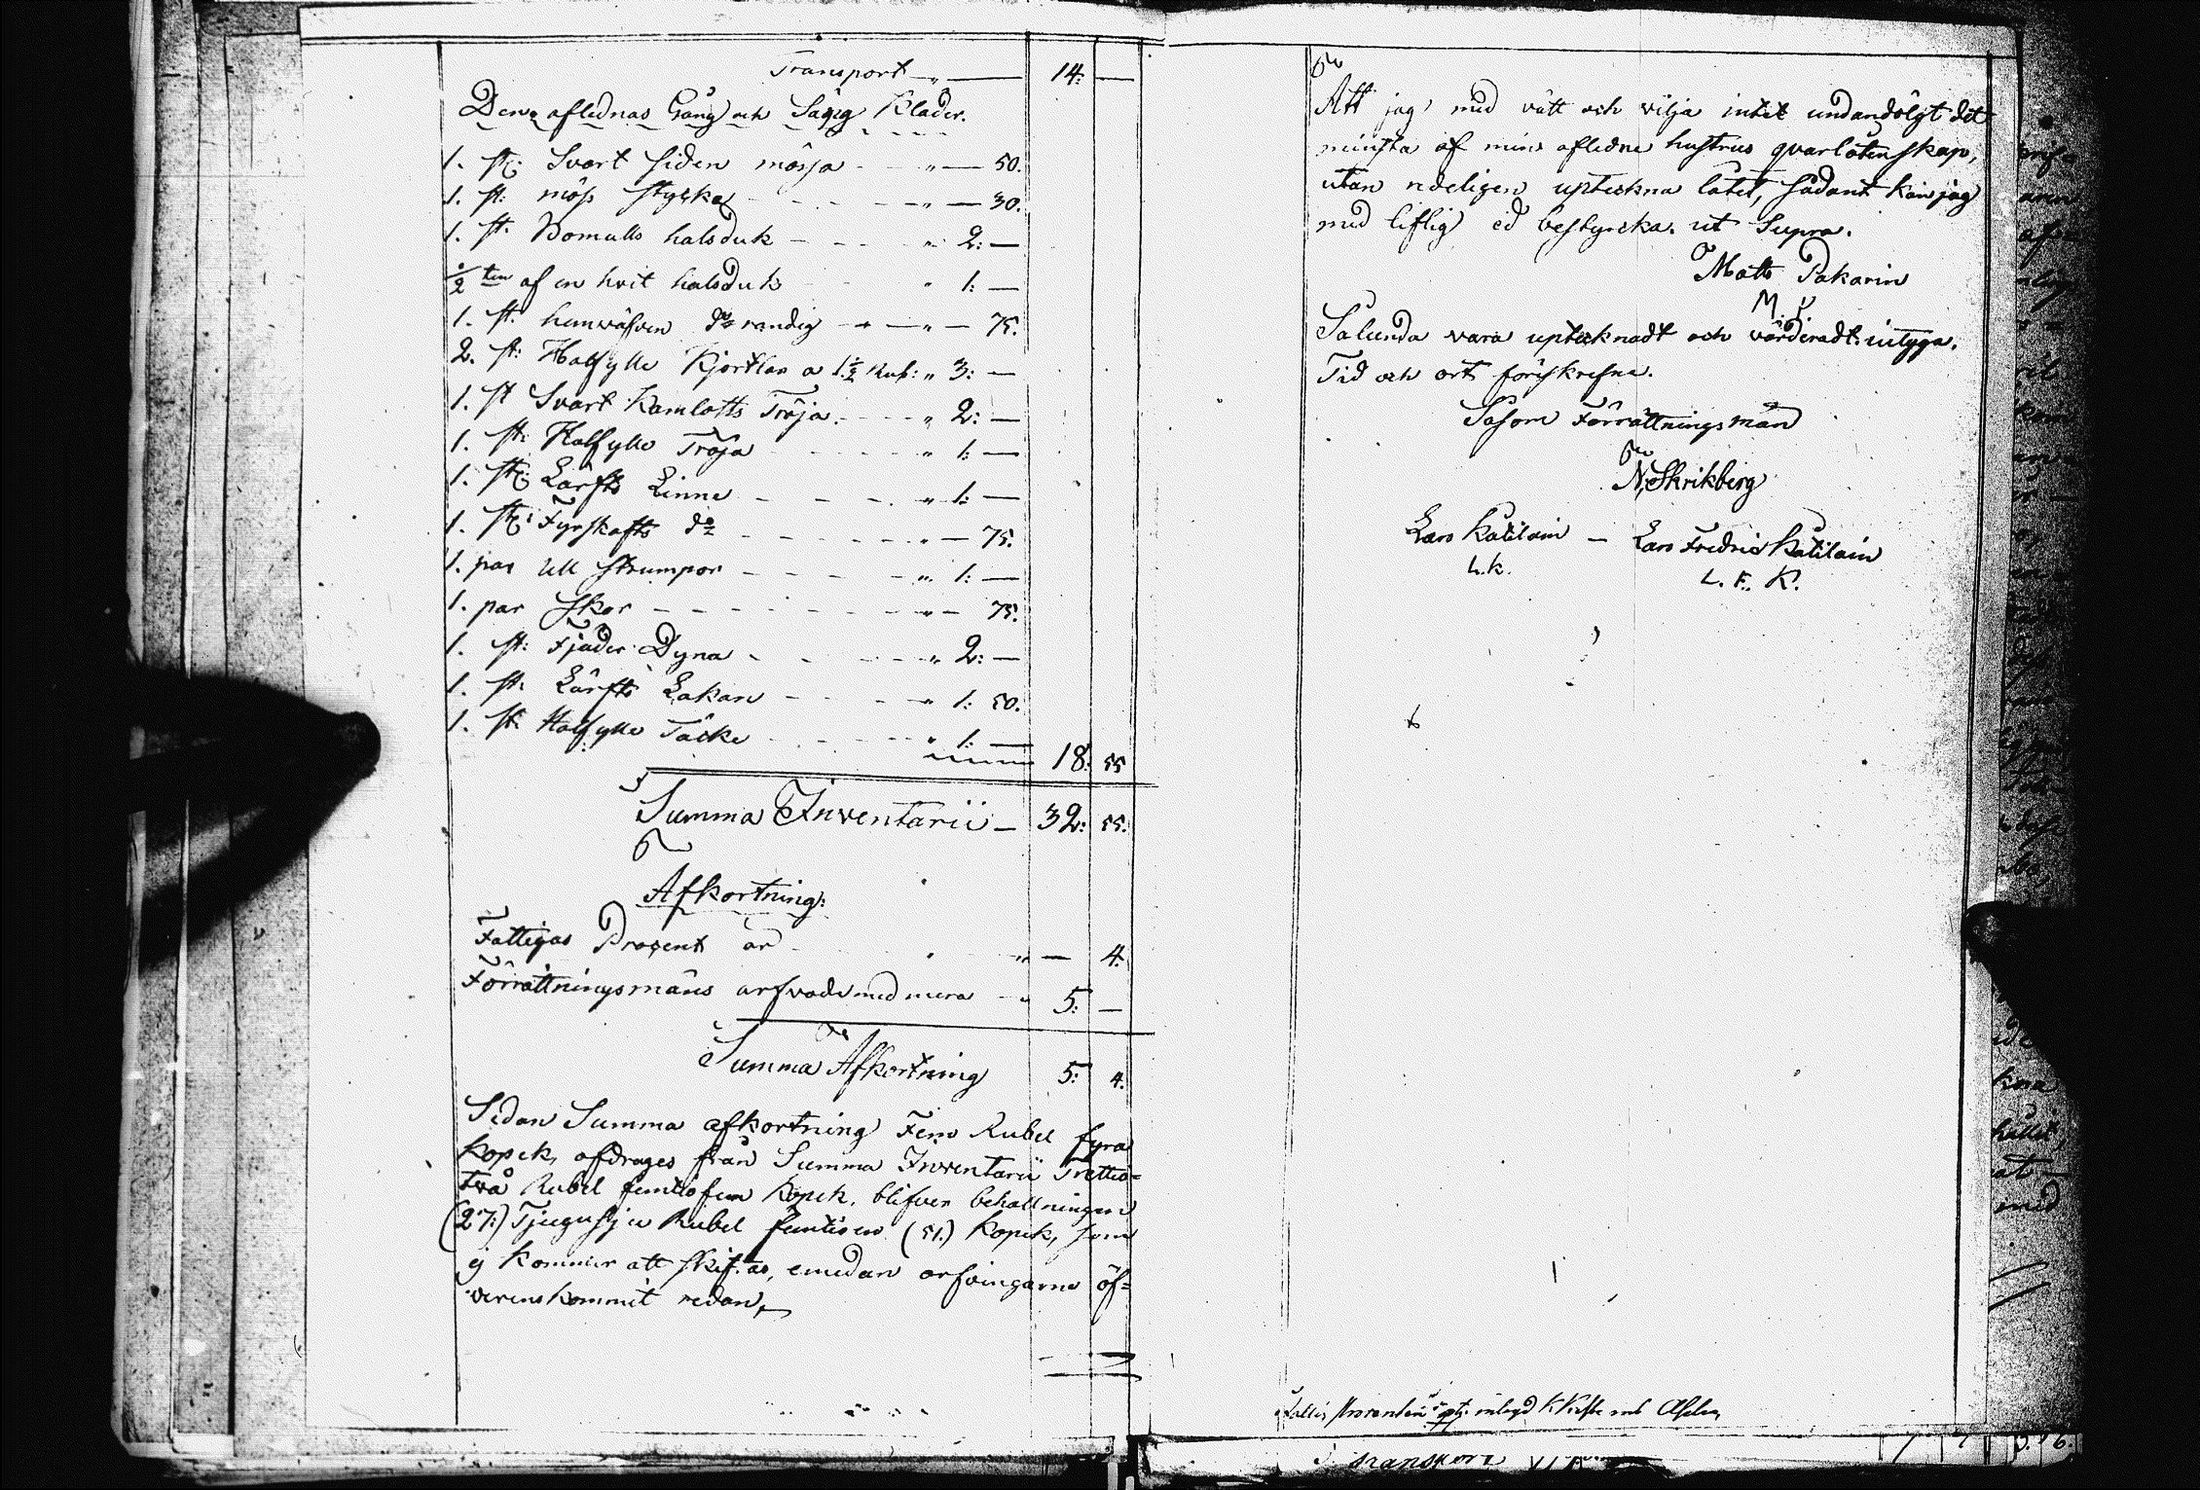 Transport „ — 14: —
Den aflednas Gång och Säng Kläder.
1. st: Svart siden mössa „ — 50.
1. st: möss stycke „ — 30.
1. st. Bomulls halsduk „ 2: —
½ten af en hvit halsduk „ 1: —
1. st. hemväfven do randig „ — 75.
2. st: Halfylle Kjortlar a 1½ Rub: „ 3: —
1. st Svart Kamlotts Tröja „ 2: —
1. st: Halfylle Tröja „ 1: —
1. st: Lärfts Linne „ 1: —
1. st: Fyrskafts do „ — 75.
1. par Ull strumpor „ 1: —
1. par skor „ — 75.
1. st: Fjäder Dyna „ 2: —
1. st: Lärfts Lakan „ 1: 50.
1. st: Halfylle Täcke „ 1: — 18: 55
Summa Inventarii — 32: 55.
Afkortning:
Fattigas Procent är „ — 4.
Förrättningsmäns arfvode med mera „ 5: —
Summa Afkortning 5: 4.
Sedan Summa afkortning Fem Rubel fyra
Kopek, afdrages från Summa Inventarii Trettio=
två Rubel femtiofem Kopek, blifver behållningen
(27:) Tjugusju Rubel femtien (51.) Kopek, som
ej kommer att skiftas, emedan arfvingarne öf=
verenskommit redan,
Att jag med vått och vilja intet undandölgt det
minsta af min afledne hustrus qvarlåtenskap,
utan redeligen upteckna låtit, sådant kan jag
med liflig ed bestyrcka. ut Supra.
Matts Pakarin
M. P.
Sålunda vara upteknadt och värderadt intyga.
Tid och ort förskrefne.
Såsom Förrättningsmän
N. Skrikberg
Lars Katilain — Lars Fredric Katilain
L. K. L. F. K.
Transport